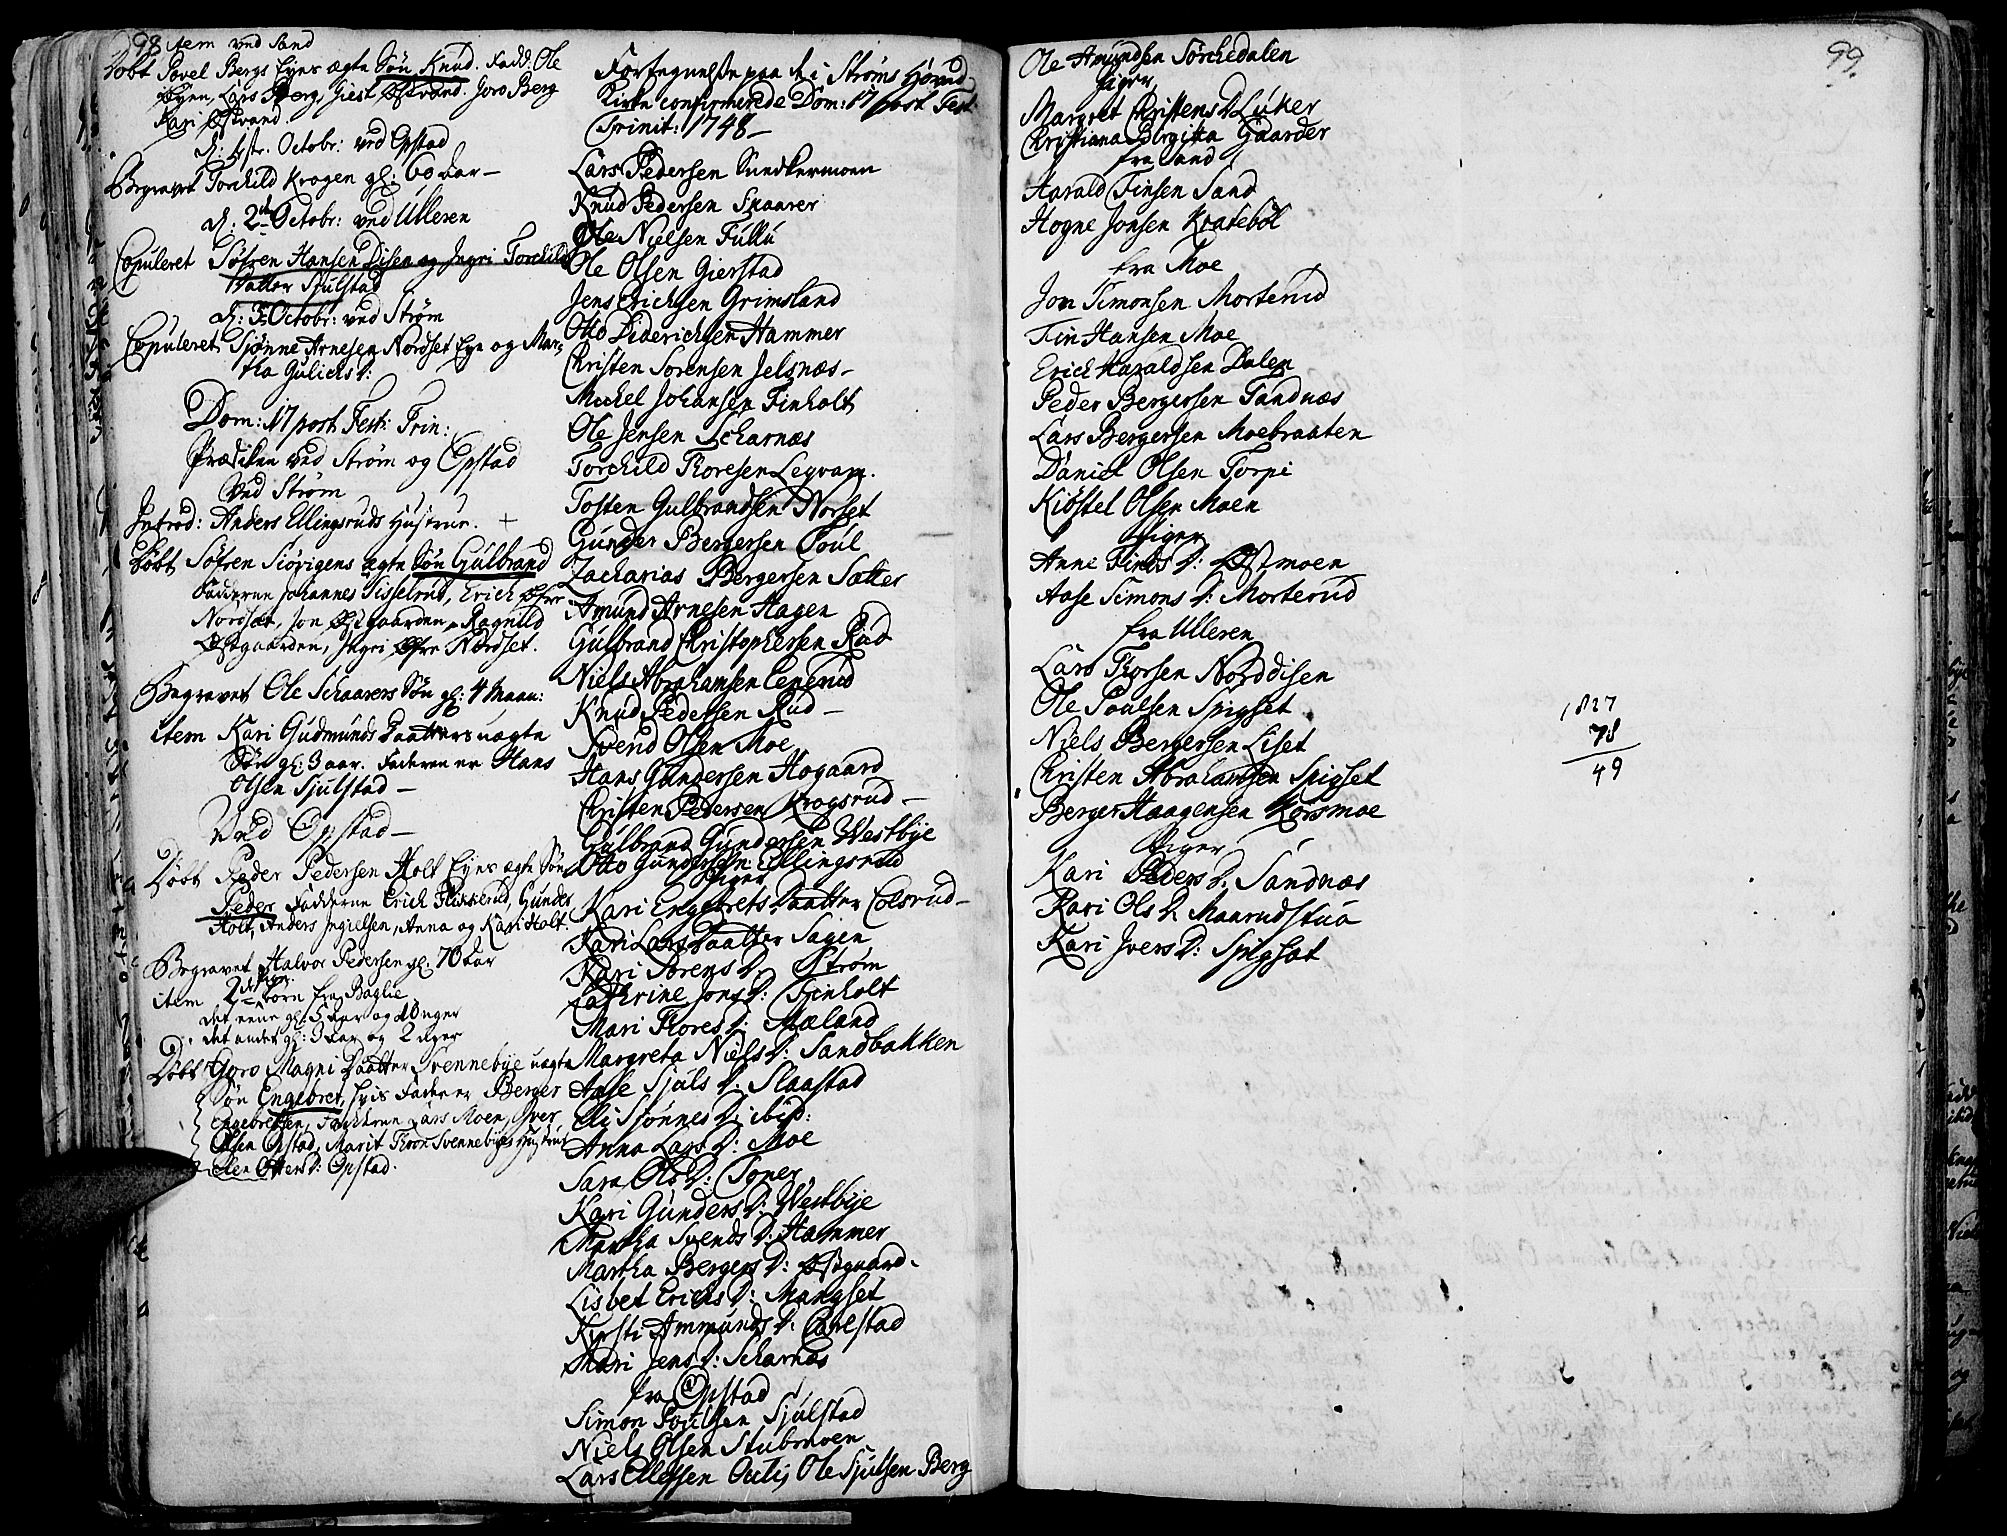 98 item ved Sand
Døbt Povel Bergs Eyes ægte Søn Knud. Fadd: Ole
Eyen, Lars Berg, Giest Østvand. Joro Berg
Kari Østvand.
d: 1ste Octobr: ved Opstad
Begravet Torchild Krogen gl: 60 aar –
d: 2den Octobr: ved Ulleren
Copuleret Søfren Hansen Disen og Ingri Torchilds
Datter Sjulstad
d: 3 Octobr: ved Strøm
Copuleret Sjønne Arnesen Nordset Eye og Mar-
tha Gulichsd:
Dom: 17 post Fest: Trin:
Prædiken ved Strøm og Opstad
Ved Strøm
Introd: Anders Ellingsruds Hustrue. +
Døbt Søfren Siørigens ægte Søn Gulbrand
Fadderne Johannes Sisselrud, Erich Øfre
Nordset, Jon Østgaarden, Ragnild
Østgaarden, Ingri Øfre Nordset.
Begravet Ole Schaarers Søn gl: 4 Maan:
item Kari Gudmunds Daatters uægte
Søn gl: 3 aar. Faderen er Hans
Olsen Sjulstad –
Ved Opstad –
Døbt Peder Pedersen Holt Eyes ægte Søn
Peder Fadderne Erich Flikkerud, Gunder
Holt, Anders Ingielsen, Anna og Kari Holt.
Begravet Halvor Pedersen gl: 70 aar
item 2de Børn fra Baglie
det eene gl: 5 aar og 10 uger
det andet gl: 3 aar og 2 uger
Døbt Goro Magni Daatter Svennebye uægte
Søn Engebret, hvis Fader er Berger
Engebretsen, Fadderne Lars Moen, Iver
Olsen Opstad, Marit Thor Svennebyes Hustrue
Elen Ottersd: Opstad.
Fortegnelse paa de i Strøms Hoved-
Kirke confirmerede Dom: 17 post Fest:
Trinit: 1748 –
Lars Pedersen Sundkermoen
Knud Pedersen Skaarer
Ole Nielsen Fullu
Ole Olsen Gierstad
Jens Erichsen Grimsland
Otto Diderichsen Hammer
Christen Sørensen Jelsnæs –
Michel Johansen Finholt
Ole Jensen Scharnæs
Torchild Thoresen Legvam.
Tosten Gulbrandsen Norset
Gunder Bergersen Poul
Zacharias Bergersen Sætter
Amund Arnesen Hagen
Gulbrand Christophersen Rud
Niels Abrahamsen Enerud
Knud Pedersen Rud –
Svend Olsen Moe
Hans Gundersen Hogaard
Christen Pedersen Krogsrud –
Gulbrand Gundersen Westbye
Otto Gundersen Ellingsrud
Piger
Kari Engebrets Daatter Colsrud –
Kari Lars Daatter Sagen
Kari Sørens D: Strøm
Cathrine Jons D: Finholt
Mari Thores D: Mæland
Margreta Niels D: Sandbakken
Aase Sjuls D: Slaastad
Eli Sjønnes D: ibid:
Anna Lars D: Moe
Sara Ols D: Toner
Kari Gunders D: Westbye
Martha Svends D: Hammer
Martha Bergers D: Østgaard.
Lisbet Erichs D: Mangset
Kirsti Ammunds D: Carlstad
Mari Jens D: Scharnæs
fra Opstad
Simon Poulsen Sjulstad
Niels Olsen Stubmoen
Lars Ellefsen Outij Ole Sjulsen Berg
99.
Ole Amundsen Sørchedalen
Piger
Margret Christens D: Luker
Christiana Birgitta Gaarder
fra Sand
Harald Finsen Sand
Hogne Jonsen Kratebøl
fra Moe
Jon Simonsen Morterud
Fin Hansen Moe
Erich Haraldsen Dalen
Peder Bergersen Sandnæs
Lars Bergersen Moebraaten
Daniel Olsen Torpi
Kiøstel Olsen Moen
Piger
Anne Finds D: Østmoen
Aase Simons D: Morterud
fra Ulleren
Lars Thorsen Norddisen
Ole Poulsen Spigset
Niels Bergersen Liset
Christen Abrahamsen Spigset
Berger Haagensen Korsmoe
Piger
Kari Peders D: Sandnæs
Kari Ols D: Maarudstua
Kari Ivers D: Spigset
1827
78
49